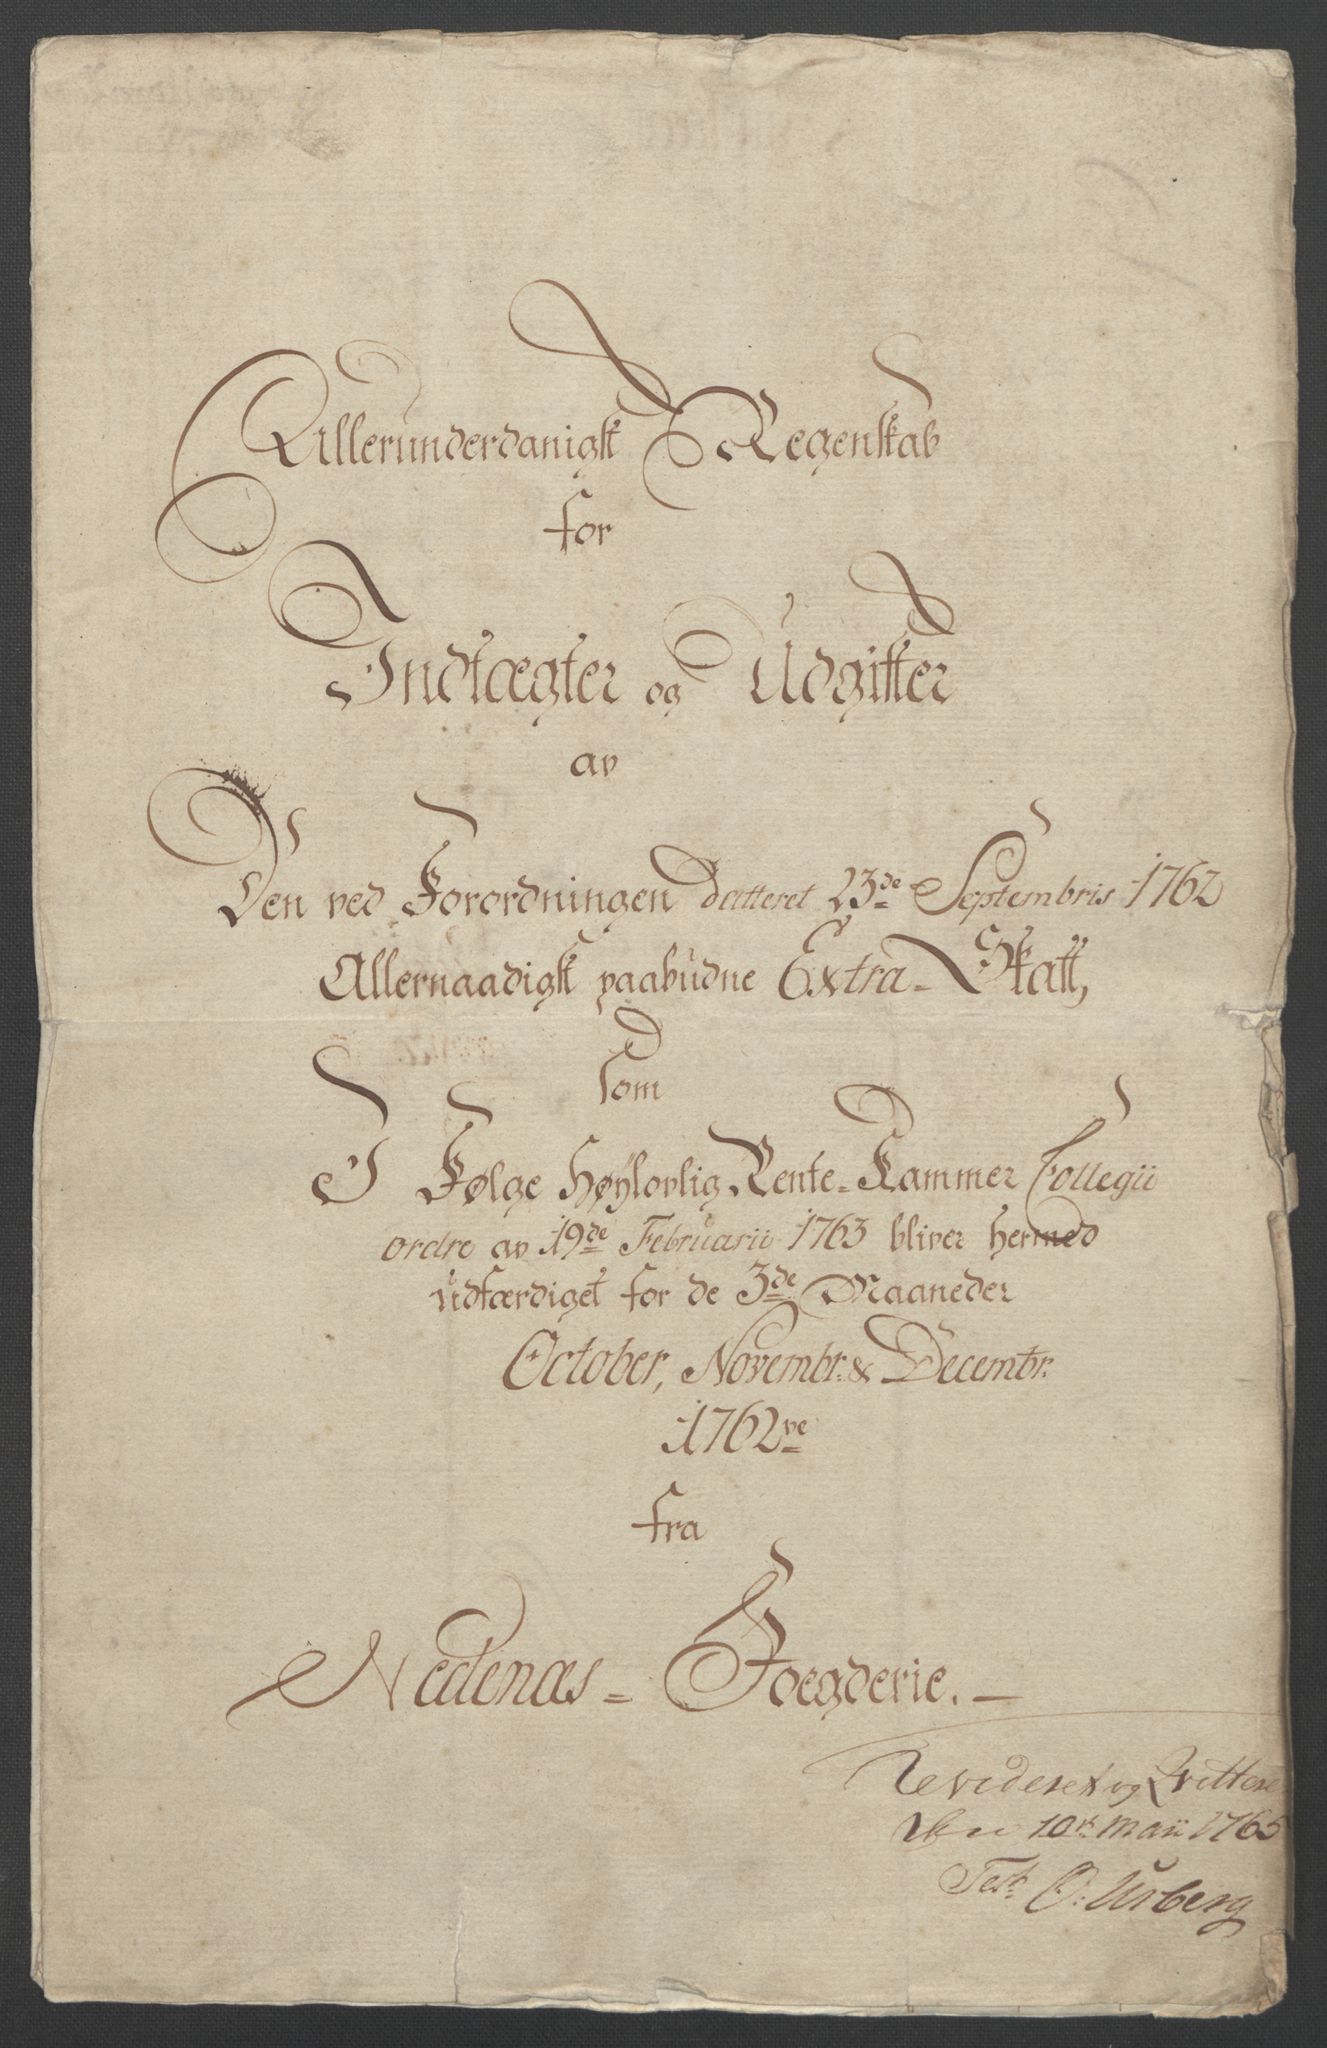 Allerunderdanigst Regenskab
for
Indtægter og Udgifter
av
Den ved Forordningen datteret 23de Septembris 1762
Allernaadigst paabudne Extra-Skatt,
som
I Følge Høylovlig Rente-Kammer Collegii
ordre av 19de Februarii 1763 bliver hermed
udfærdiget for de 3de Maaneder
October, Novembr: & Decembr.
1762ve
fra
Nedenæs = Foegderie. —
Revideret og Qvittere
den 10de Maii 1765
Test: O: Urberg